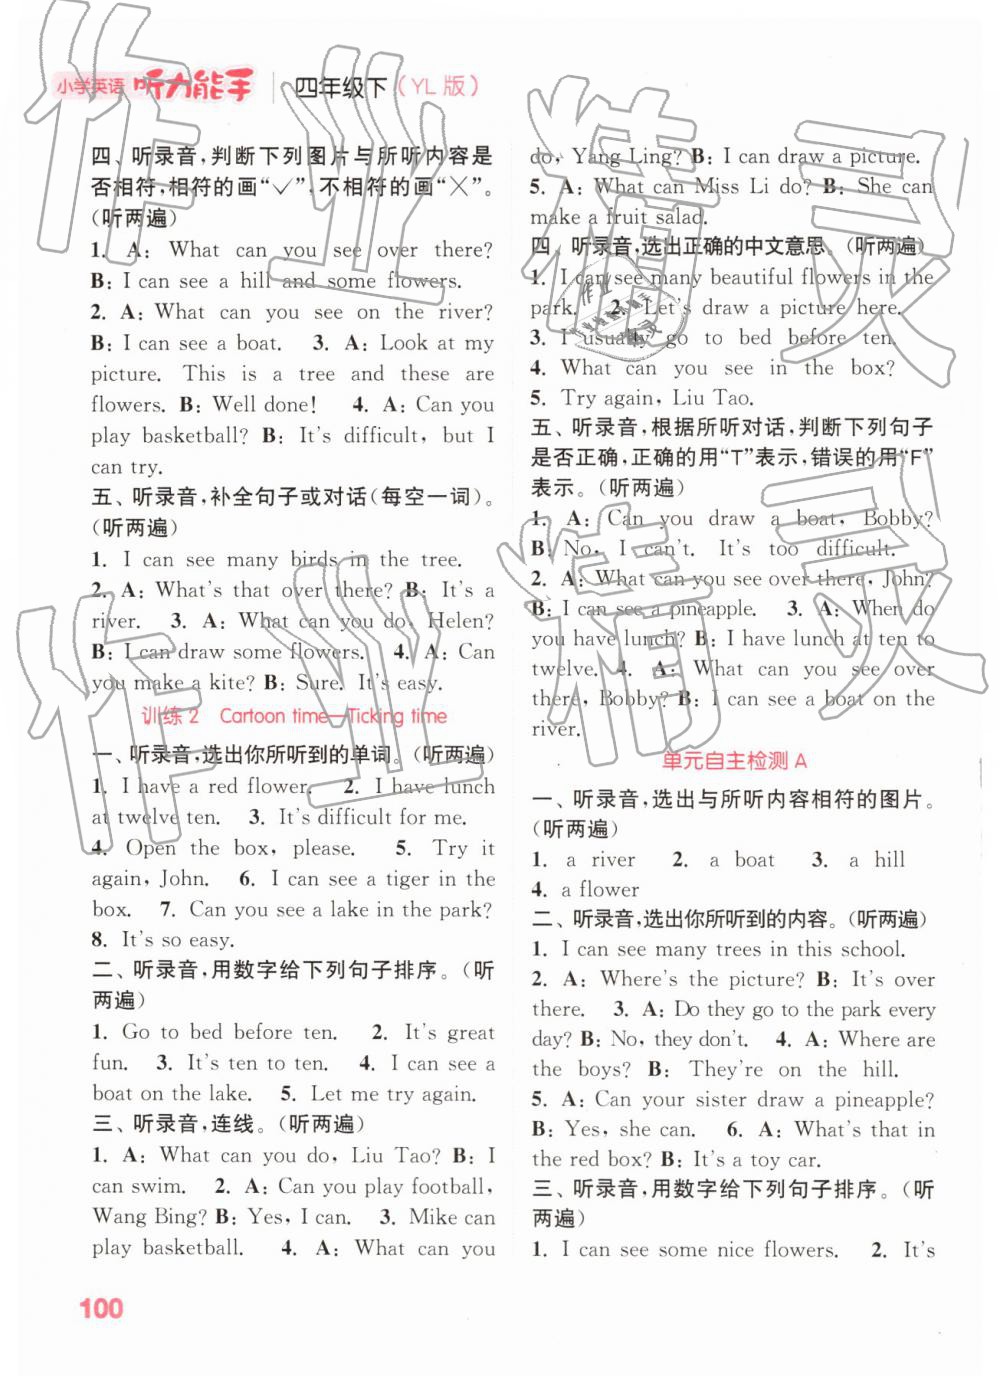 小学英语 听力能手 四年级下(YL版)
四、听录音,判断下列图片与所听内容是
否相符,相符的画“✓”,不相符的画“╳”。
(听两遍)
1. A: What can you see over there?
B: I can see a hill and some flowers.
2. A: What can you see on the river?
B: I can see a boat. 3. A: Look at my
picture. This is a tree and these are
flowers. B: Well done! 4. A: Can you
play basketball? B: It's difficult, but I
can try.
五、听录音,补全句子或对话(每空一词)。
(听两遍)
1. I can see many birds in the tree.
2. A: What's that over there? B: It's a
river. 3. A: What can you do, Helen?
B: I can draw some flowers. 4. A: Can
you make a kite? B: Sure. It's easy.
训练2 Cartoon time—Ticking time
一、听录音,选出你所听到的单词。(听两遍)
1. I have a red flower. 2. I have lunch
at twelve ten. 3. It's difficult for me.
4. Open the box, please. 5. Try it
again, John. 6. I can see a tiger in the
box. 7. Can you see a lake in the park?
8. It's so easy.
二、听录音,用数字给下列句子排序。(听
两遍)
1. Go to bed before ten. 2. It's great
fun. 3. It's ten to ten. 4. I can see a
boat on the lake. 5. Let me try again.
三、听录音,连线。(听两遍)
1. A: What can you do, Liu Tao? B: I
can swim. 2. A: Can you play football,
Wang Bing? B: Yes, I can. 3. Mike can
play basketball. 4. A: What can you
do, Yang Ling? B: I can draw a picture.
5. A: What can Miss Li do? B: She can
make a fruit salad.
四、听录音,选出正确的中文意思。(听两遍)
1. I can see many beautiful flowers in the
park. 2. Let's draw a picture here.
3. I usually go to bed before ten.
4. What can you see in the box?
5. Try again, Liu Tao.
五、听录音,根据所听对话,判断下列句子
是否正确,正确的用“T”表示,错误的用“F”
表示。(听两遍)
1. A: Can you draw a boat, Bobby?
B: No, I can't. It's too difficult.
2. A: What can you see over there, John?
B: I can see a pineapple. 3. A: When do
you have lunch? B: I have lunch at ten to
twelve. 4. A: What can you see over
there, Bobby? B: I can see a boat on the
river.
单元自主检测A
一、听录音,选出与所听内容相符的图片。
(听两遍)
1. a river 2. a boat 3. a hill
4. a flower
二、听录音,选出你所听到的内容。(听两遍)
1. I can see many trees in this school.
2. A: Where's the picture? B: It's over
there. 3. A: Do they go to the park every
day? B: No, they don't. 4. A: Where are
the boys? B: They're on the hill.
5. A: Can your sister draw a pineapple?
B: Yes, she can. 6. A: What's that in
the red box? B: It's a toy car.
三、听录音,用数字给下列句子排序。(听
两遍)
1. I can see some nice flowers. 2. It's
100
作业精灵
作业精灵